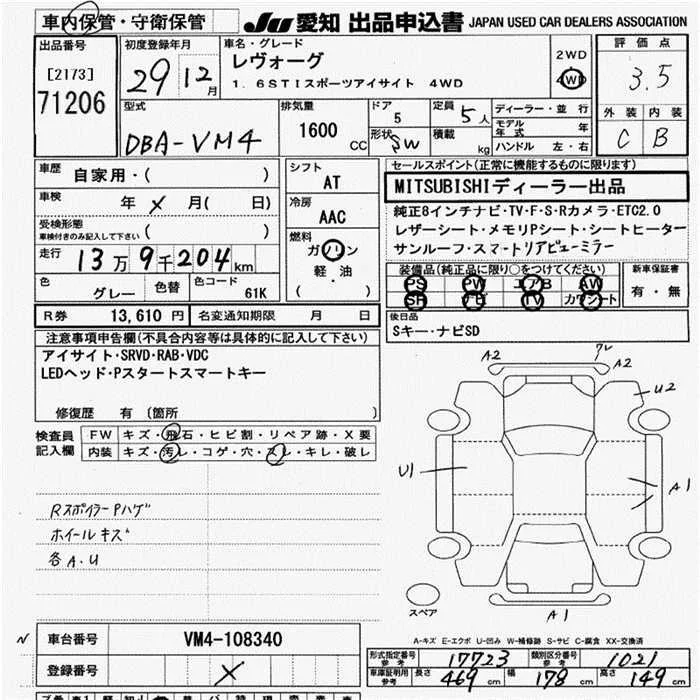 車内保管・守衛保管
JU 愛知 出品申込書 JAPAN USED CAR DEALERS ASSOCIATION
出品番号
[2173]
71206
初度登録年月
29 12月
車名・グレード
レヴォーグ
1.6STIスポーツアイサイト 4WD
2WD
4WD
評価点
3.5
外装 内装
C B
型式
DBA-VM4
排気量
1600 CC
ドア
5
形状 SW
定員 5人
積載 kg
ディーラー・並行
モデル年式 年
ハンドル 左・右
車歴 自家用・( )
車検 年 × 月( 日)
受検形態
車検付きのみ記入して下さい ( )
走行 13万9千204km
色 グレー 色替 色コード 61K
シフト
AT
冷房
AAC
燃料
ガソリン
軽・油
( )
セールスポイント(正常に機能するものに限ります)
MITSUBISHIディーラー出品
純正8インチナビ・TV・F・S・Rカメラ・ETC2.0
レザーシート・メモリPシート・シートヒーター
サンルーフ・スマートリアビューミラー
装備品(純正品に限り○をつけてください)
PS PW エアB AW
SR ナビ TV カワシート
新車保証書
有・無
後日品
Sキー・ナビSD
R券 13,610円 名変通知期限 月 日
注意事項申告欄(不具合内容等は具体的に記入して下さい)
アイサイト・SRVD・RAB・VDC
LEDヘッド・Pスタートスマートキー
修復歴 有 〔箇所 〕
検査員記入欄
FW キズ・飛石・ヒビ割・リペア跡・X要
内装 キズ・汚レ・コゲ・穴・スレ・キレ・破レ
Rスポイラー Pハゲ
ホイールキズ
各A.U
A2 ワレ A2
U2
U1
A1
A1
スペア
A-キズ E-エクボ U-凹み W-補修跡 S-サビ C-腐食 XX-交換済
N 車台番号 VM4-108340
登録番号 ×
形式指定番号 参考 17723 類別区分番号 参考 1021
車庫証明用 参考 長さ 469cm 幅 178cm 高さ 149cm